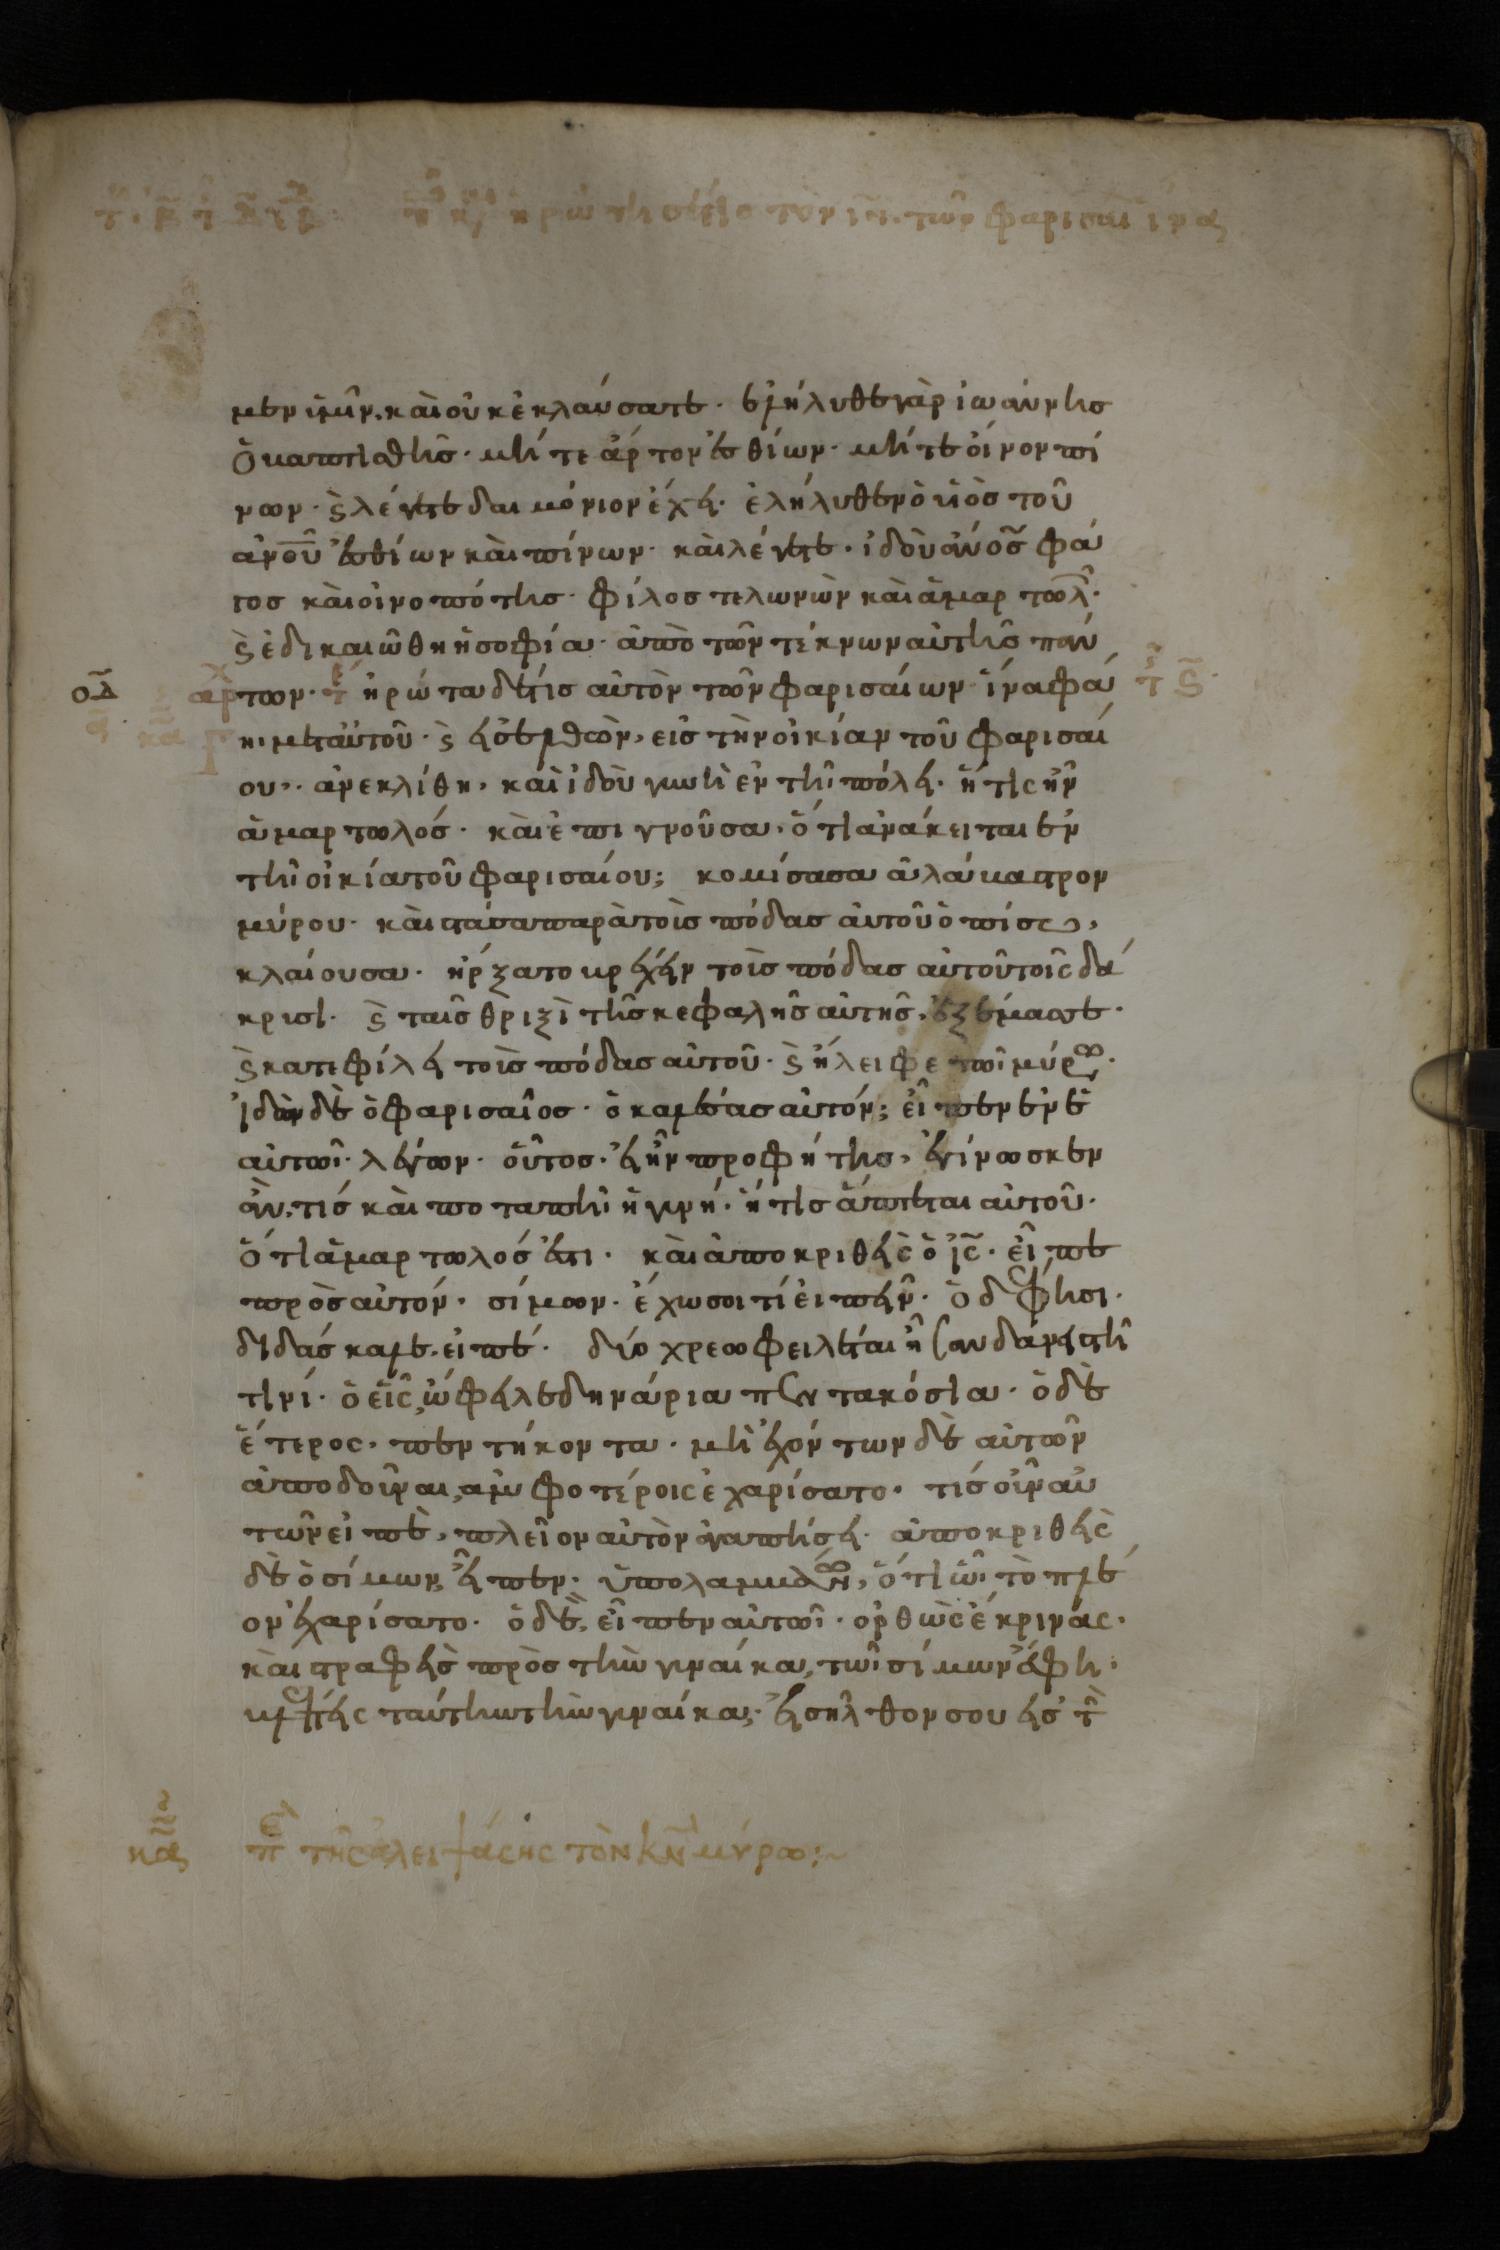 μεν ὑμῖν, καὶ οὐκ ἐκλαύσατε· ἐλήλυθε γὰρ ἰωάννης
ὁ βαπτιστῆς· μήτε ἄρτον ἐσθίων· μήτε οἶνον πί
νων· ϗ λέγετε δαιμόνιον ἔχει· ἐλήλυθεν ὁ υἱὸσ τοῦ
ανου ἐσθίων καὶ πίνων· καὶ λέγετε· ἰδοὺ ανοσ φά
γοσ καὶ οἰνοπότησ· φίλοσ τελωνῶν καὶ ἁμαρτωλ·
ϗ ἐδικαιώθη ἡ σοφία· ἀπὸ τῶν τέκνων αὐτῆσ πάν
οδ αρχ των· τε ἠρώτα δέ τισ αὐτὸν τῶν φαρισαίων ἵνα φά
κα η μετ αὐτοῦ· ϗ εἰσελθὼν, εἰσ τὴν οἰκίαν τοῦ φαρισαί
ου, ἀνεκλίθη, καὶ ἰδοὺ γυνὴ ἐν τῆ πόλει· ἥτις ἦν
ἁμαρτωλόσ· καὶ ἐπιγνοῦσα, ὅτι ἀνάκειται ἐν
τῆ οἰκία τοῦ φαρισαίου; κομίσασα ἀλάβαστρον
μύρου· καὶ στάσα παρὰ τοὺσ πόδασ αὐτοῦ ὀπίσω,
κλαίουσα· ἤρξατο βρέχειν τοὺσ πόδασ αὐτοῦ τοῖς δά
κρισι· ϗ ταῖσ θριξὶ τῆσ κεφαλῆσ αὐτῆσ, ἐξέμασσε·
ϗ κατεφίλει τοὺσ πόδασ αὐτοῦ· ϗ ἤλειφε τῶ μύρω·
ἰδὼν δὲ ὁ φαρισαῖοσ· ὁ καλέσασ αὐτόν; εἶπεν ἐν ἑ
αὐτῶ· λέγων· οὗτοσ· εἰ ἦν προφήτησ, ἐγίνωσκεν
ἂν, τίσ καὶ ποταπὴ ἡ γυνή· ἥτισ ἅπτεται αὐτοῦ·
ὅτι ἁμαρτωλόσ ἐστι· καὶ ἀποκριθεὶς ὁ ις· εἶπε
πρὸσ αὐτόν· σίμων· ἔχω σοι τί εἰπεῖν· ὁ δέ φησι·
διδάσκαλε, εἰπέ· δύο χρεωφειλέται ἦσαν δανειστῆ
τινί· ὁ εἷς, ὤφειλε δηνάρια πεντακόσια· ὁ δὲ
ἕτερος· πεντήκοντα· μὴ ἐχόντων δὲ αὐτῶν
ἀποδοῦναι, ἀμφοτέροις ἐχαρίσατο· τίσ οὖν αὐ
τῶν εἰπὲ, πλεῖον αὐτὸν ἀγαπήσει· ἀποκριθεὶς
δὲ ὁ σίμων, εἶπεν· ὑπολαμβάνω, ὅτι ὧ τὸ πλέ
ον ἐχαρίσατο· ὁ δὲ, εἶπεν αὐτῶ· ὀρθῶς ἔκρινάς·
καὶ στραφεὶσ πρὸσ τὴν γυναίκα, τῶ σίμων ἔφη·
βλέπεις ταύτην τὴν γυναίκα; εἰσῆλθον σου εἰσ τ
κα π τῆς ἀλειψάσης τὸν κν μύρω:~